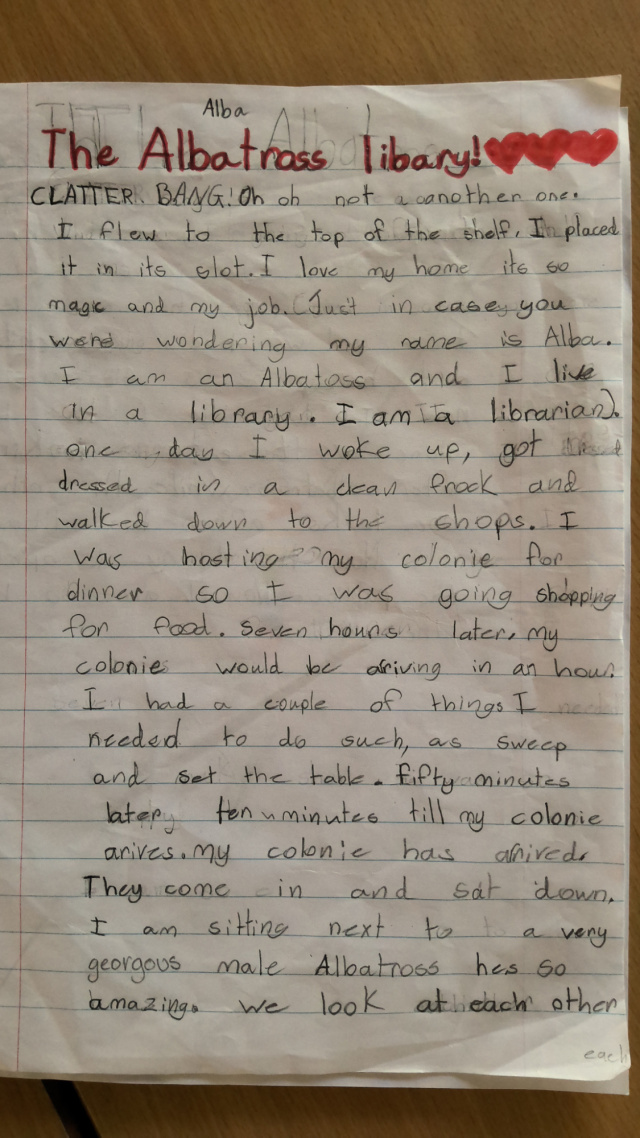 Alba
The Albatross libary!
CLATTER. BANG! Oh oh not a another one.
I flew to the top of the shelf, I placed
it in its slot. I love my home its so
magic and my job. (Just in case you
were wondering my name is Alba.
I am an Albatass and I live
in a library. I am a librarian).
one day I woke up, got
dressed in a clean frock and
walked down to the shops. I
was hosting my colonie for
dinner so I was going shopping
for food. Seven hours later, my
colonie would be ariving in an hour.
I had a couple of things I
needed to do such, as sweep
and set the table. fifty minutes
later, ten minutes till my colonie
arives. My colonie has arived.
They come in and sat down.
I am sitting next to a very
georgous male Albatross hes so
amazing. We look at each other
each